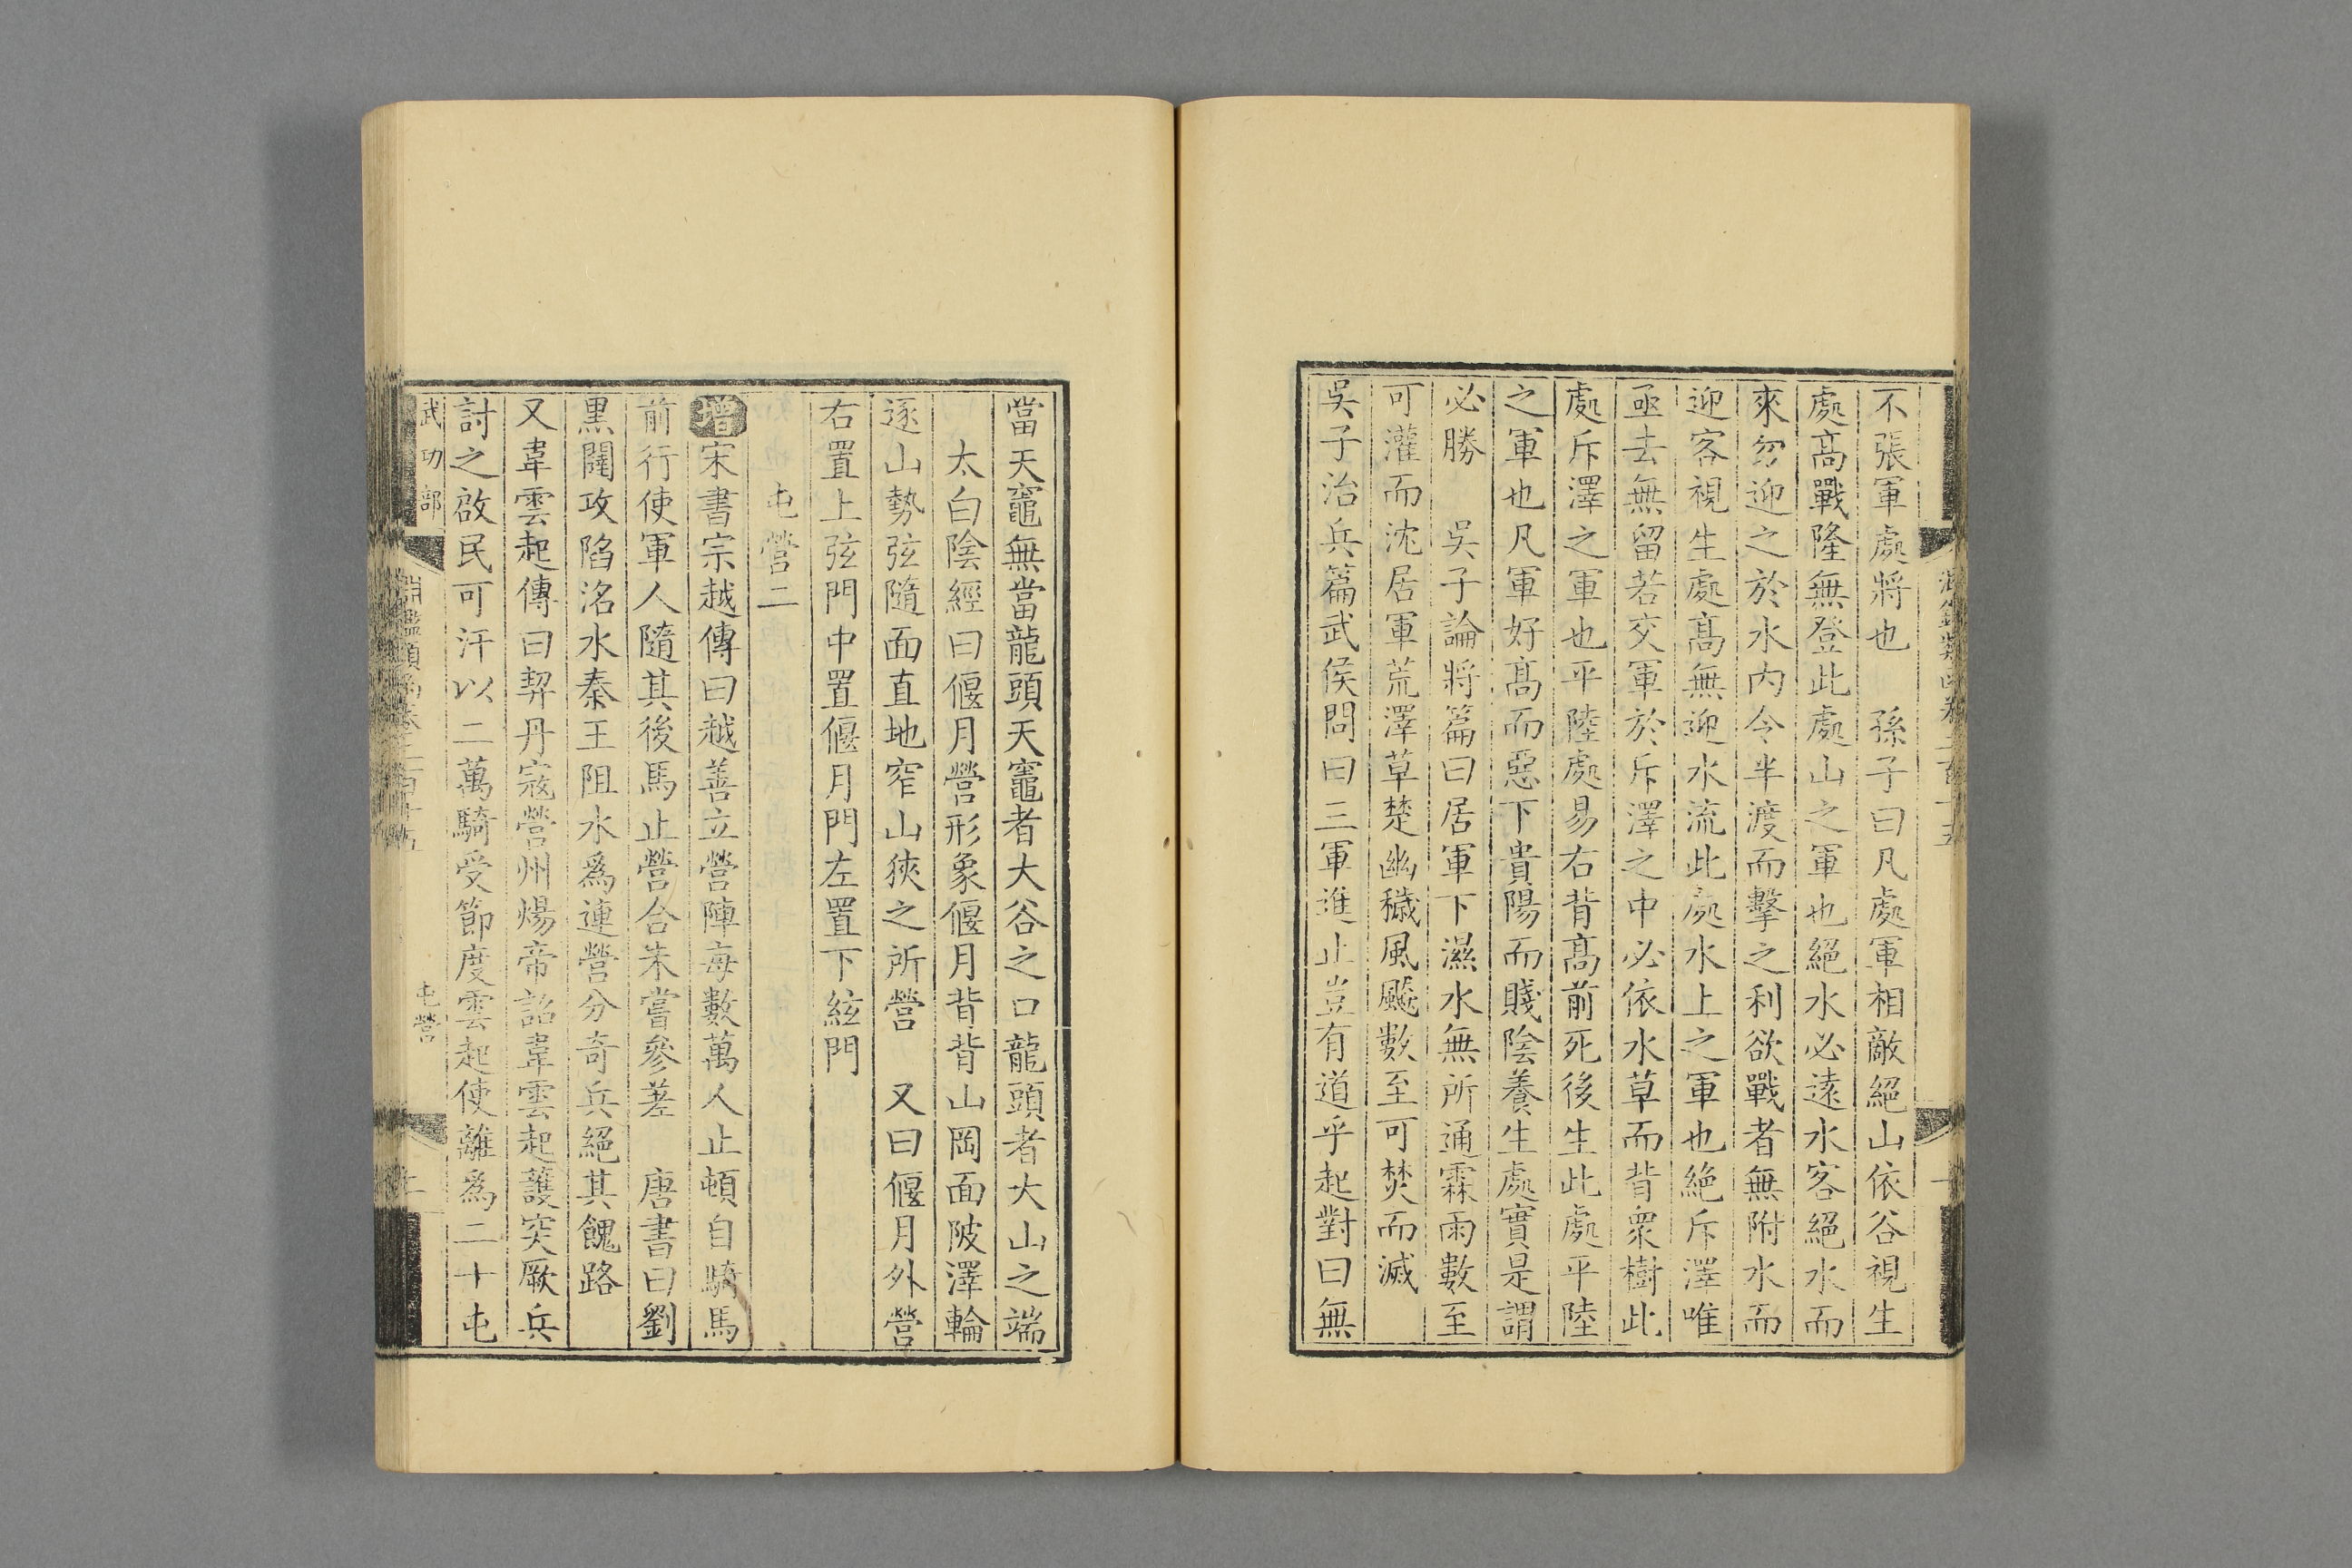 不張軍處將也　孫子曰凡處軍相敵絕山依谷視生
處髙戰隆無登此處山之軍也絕水必逺水客絕水而
來勿迎之於水内令半渡而擊之利欲戰者無附水而
迎客視生處髙無迎水流此處水上之軍也絶斥澤唯
亟去無留若交軍於斥澤之中必依水草而背衆樹此
處斥澤之軍也平陸處易右背髙前死後生此處平陸
之軍也凡軍好髙而惡下貴陽而賤陰養生處實是謂
必勝　吳子論將篇曰居軍下濕水無所通霖雨數至
可灌而沈居軍荒澤草楚幽穢風飈數至可焚而滅
吳子治兵篇武侯問曰三軍進止豈有道乎起對曰無
當天竈無當龍頭天竈者大谷之口龍頭者大山之端
太白陰經曰偃月營形象偃月背背山岡面陂澤輪
逐山勢弦隨面直地窄山狹之所營　又曰偃月外營
右置上弦門中置偃月門左置下絃門
屯營二
增宋書宗越傳曰越善立營陣每數萬人止頓自騎馬
前行使軍人隨其後馬止營合未嘗參差　唐書曰劉
黒闥攻陷洺水秦王阻水爲連營分奇兵絕其餽路
又韋雲起傳曰契丹寇營州煬帝詔韋雲起護突厥兵
討之啟民可汗以二萬騎受節度雲起使離爲二十屯
武功部
淵鑑類函卷二百十五
屯營